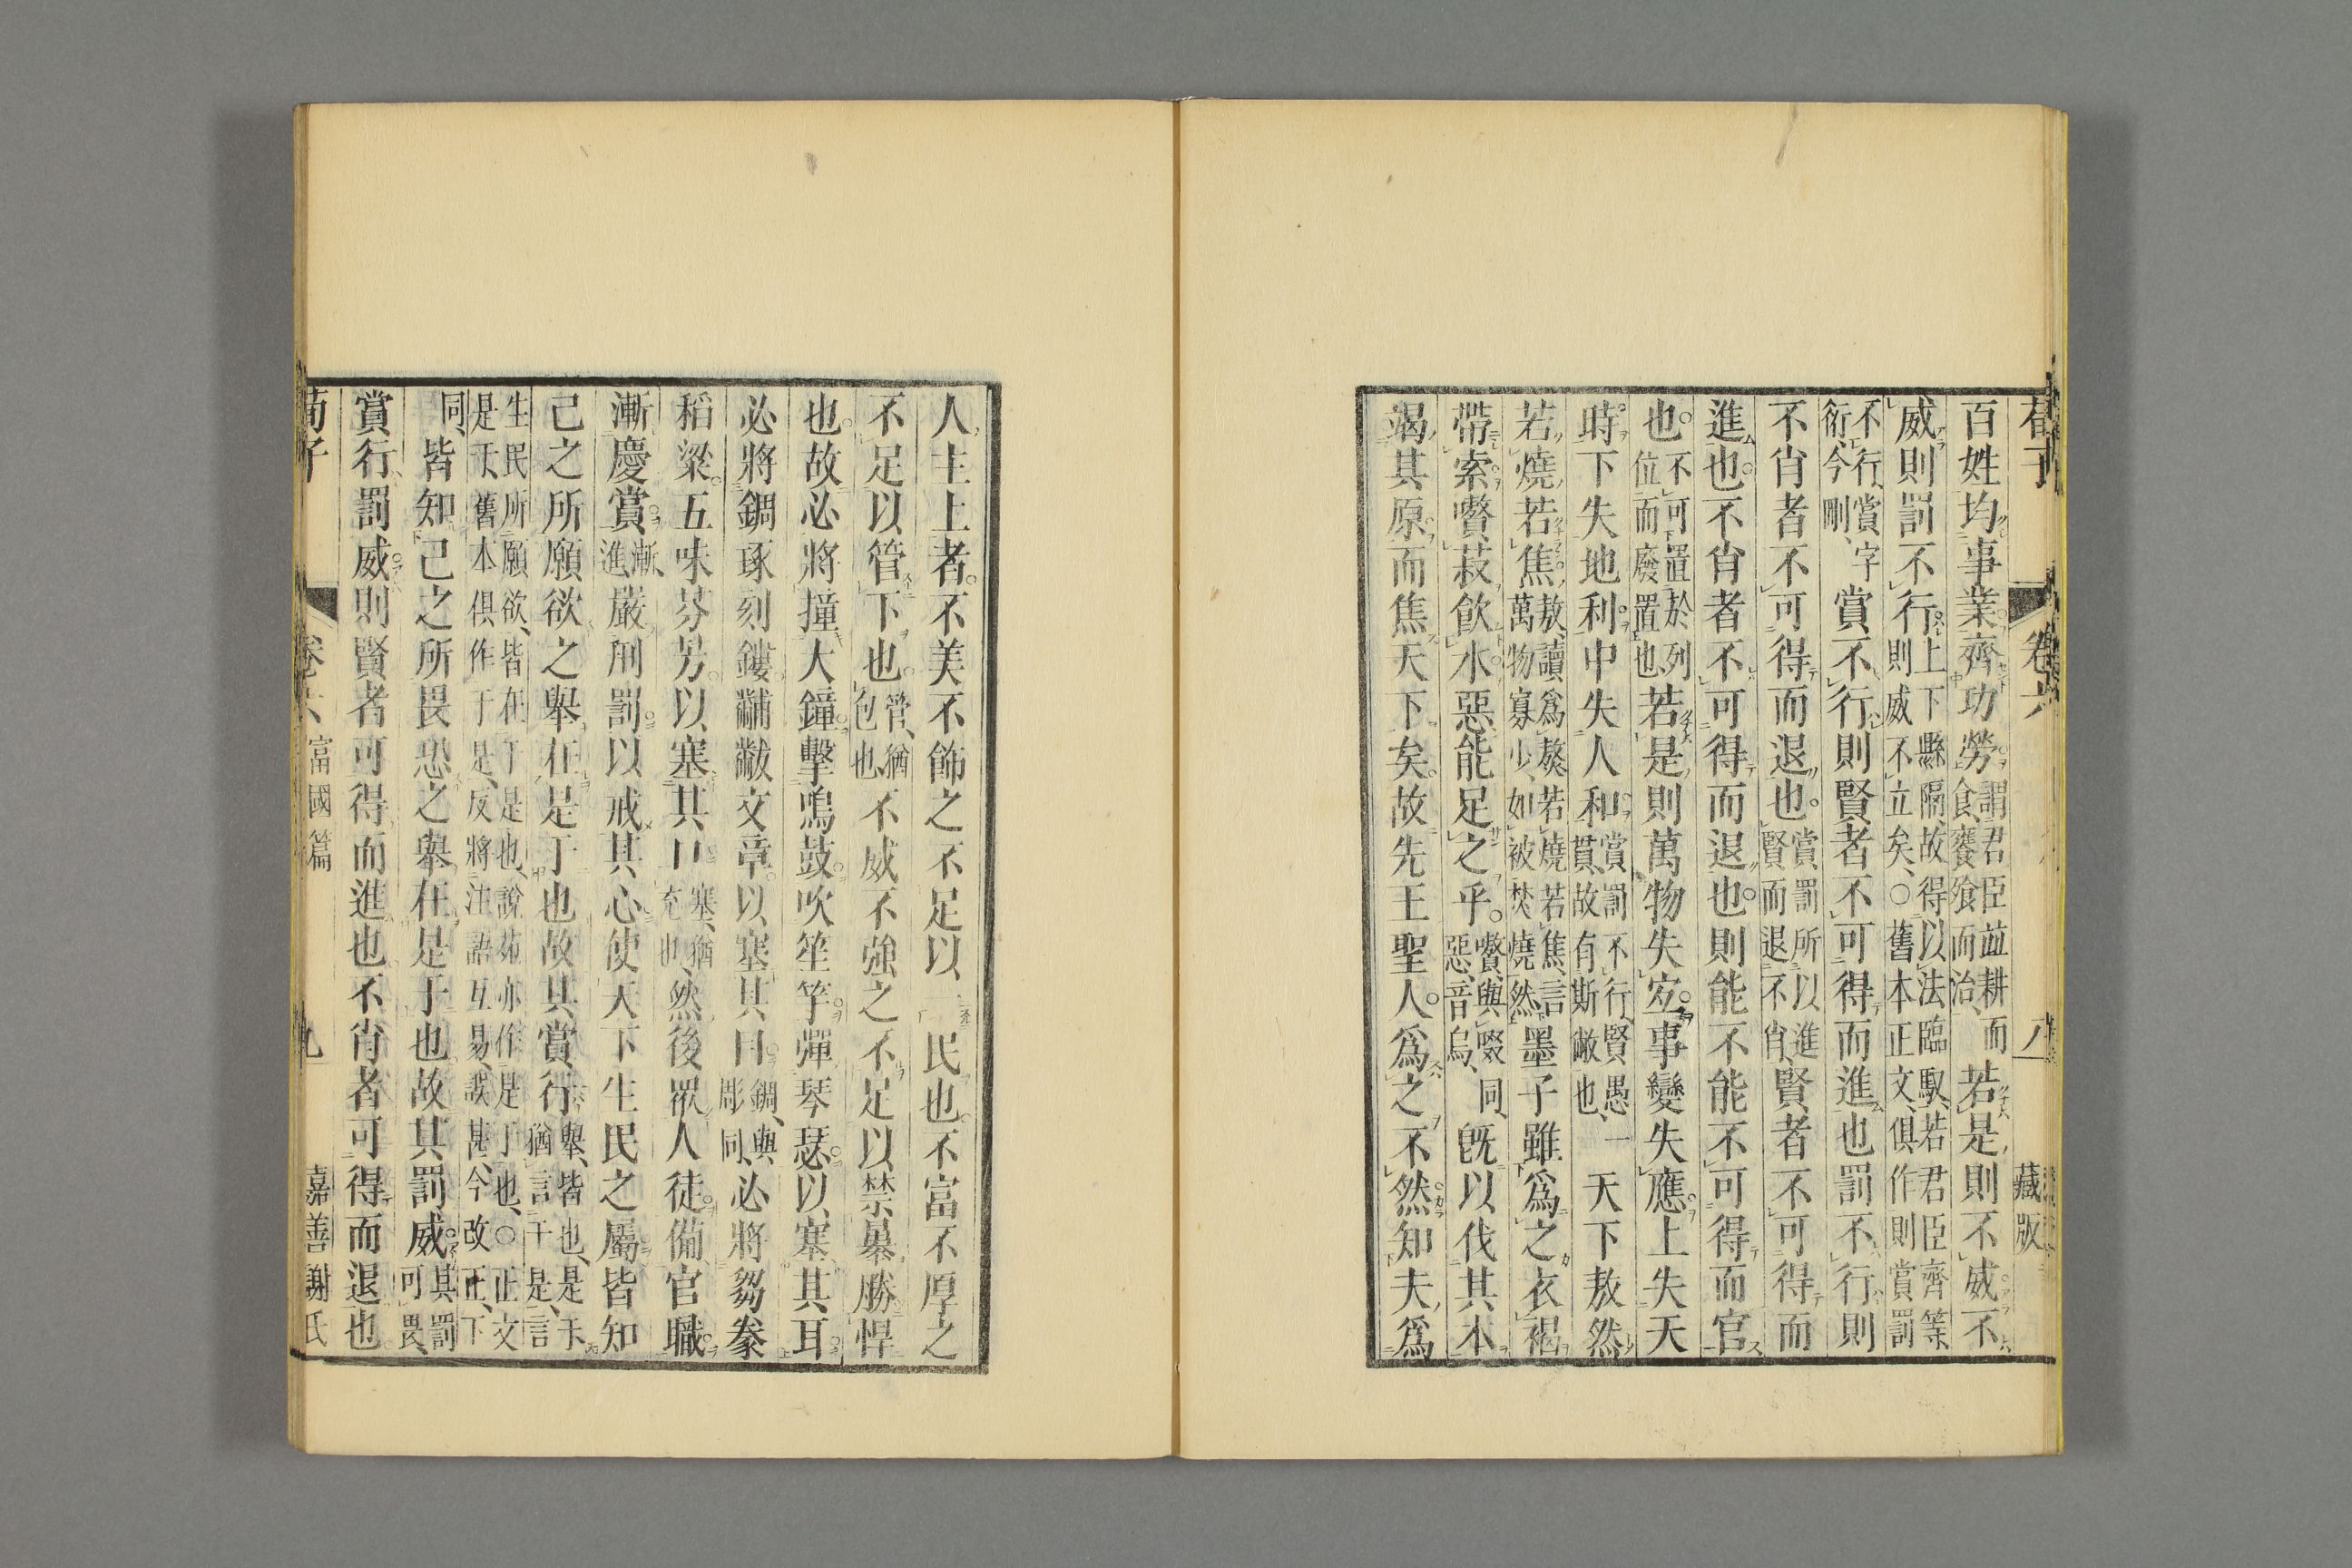 荀子 卷六 八 藏版
百姓均事業齊功勞謂君臣並耕而食饔飧而治、若是則不威不
威則罰不行上下縣隔故得以法臨馭、若君臣齊等、則威不立矣、○舊本正文、俱作則賞罰
不行、賞字衍、今刪、賞不行則賢者不可得而進也罰不行則
不肖者不可得而退也。賞罰所以進賢而退不肖、賢者不可得而
進也。不肖者不可得而退也。則能不能不可得而官
也。不可置於列位而廢置也若是則萬物失宜。事變失應。上失天
時。下失地利。中失人和。賞罰不行、賢愚一貫、故有斯敝也、天下敖然
若燒若焦敖、讀爲熬、若燒若焦、言萬物寡少、如被焚燒然墨子雖爲之衣褐
帶索嚽菽飲水惡能足之乎。嚽、與啜同、惡、音烏、既以伐其本
竭其原而焦天下矣。故先王聖人。爲之不然知夫爲
人主上者。不美不飾之不足以一民也。不富不厚之
不足以管下也。管、猶包也不威不強之不足以禁暴勝悍
也。故必將撞大鐘。擊鳴鼓。吹笙竽。彈琴瑟。以塞其耳。
必將錭琢刻鏤。黼黻文章。以塞其目。錭、與彫同、必將芻豢
稻粱。五味芬芳。以塞其口塞、猶充也、然後衆人徒。備官職。
漸慶賞。漸、進、嚴刑罰。以戒其心使天下生民之屬皆知
己之所願欲之舉在是于也故其賞行。舉、皆也、是于、猶言于是、言
生民所願欲、皆在于是也、說苑亦作是于也、○正文是于、舊本俱作于是、反將注語互易、誤甚、今改正、下
同、皆知己之所畏恐之舉在是于也故其罰威。其罰可畏、
賞行罰威則賢者可得而進也不肖者可得而退也
荀子 卷六 富國篇 九 嘉善謝氏